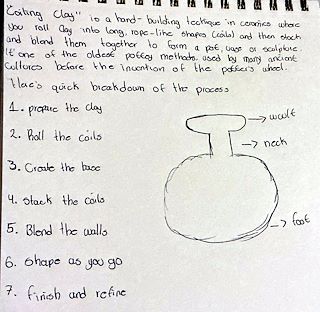 "Coiling Clay" is a hand-building technique in ceramics where
you roll clay into long, rope-like shapes (coils) and then stack
and blend them together to form a pot, vase or sculpture.
It one of the oldest pottery methods, used by many ancient
Cultures before the invention of the potter's wheel.
Here's quick breakdown of the process
1. prepare the clay
2. Roll the coils
3. Create the base
4. stack the coils
5. Blend the walls
6. shape as you go
7. finish and refine
neck
foot